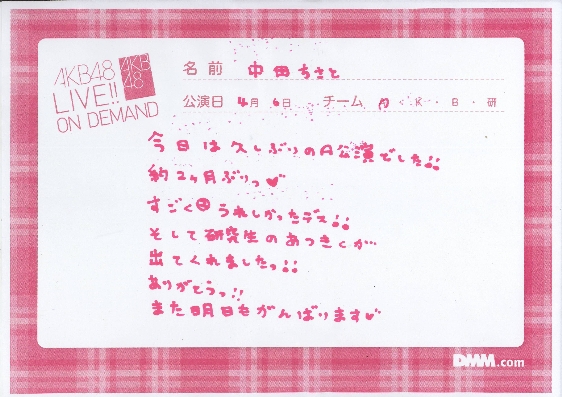 AKB48
LIVE!!
ON DEMAND
AKB
48
名前 中田ちさと
公演日 4月 6日 チーム A・K・B・研
今日は久しぶりのA公演でした!!
約2ヶ月ぶりっ♥
すごくうれしかったデス!!
そして研究生のあつきくが
出てくれましたっ!!
ありがとうっ!!
また明日もがんばります♥
DMM.com